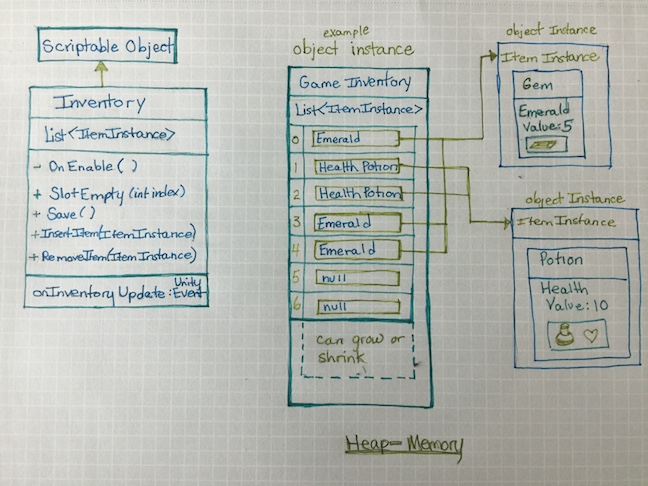 Scriptable Object
Inventory
List<ItemInstance>
- OnEnable()
+ SlotEmpty (int index)
+ Save()
+ Insert Item(ItemInstance)
+ RemoveItem(ItemInstance)
onInventory Update: Unity Event
example
object instance
Game Inventory
List<ItemInstance>
0 Emerald
1 Health Potion
2 Health Potion
3 Emerald
4 Emerald
5 null
6 null
can grow or
shrink
object Instance
Item Instance
Gem
Emerald
Value: 5
object Instance
Item Instance
Potion
Health
Value: 10
Heap-Memory